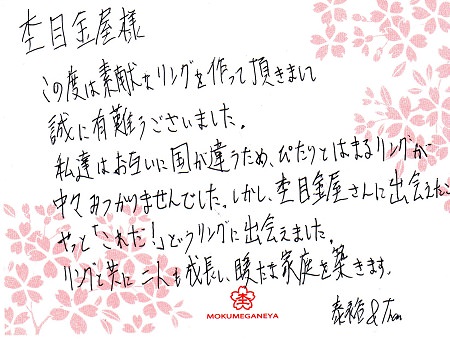 杢目金屋様
この度は素献なリングを作って頂きまして
誠に有難うございました。
私達はお互いに国が違うため、ぴたりとはまるリングが
中々みつかりませんでした。しかし、杢目金屋さんに出会えた
やっと「これだ!」というリングに出会えました。
リングと共に二人も成長し、暖たな家庭を築きます。
& Tran
MOKUMEGANEYA